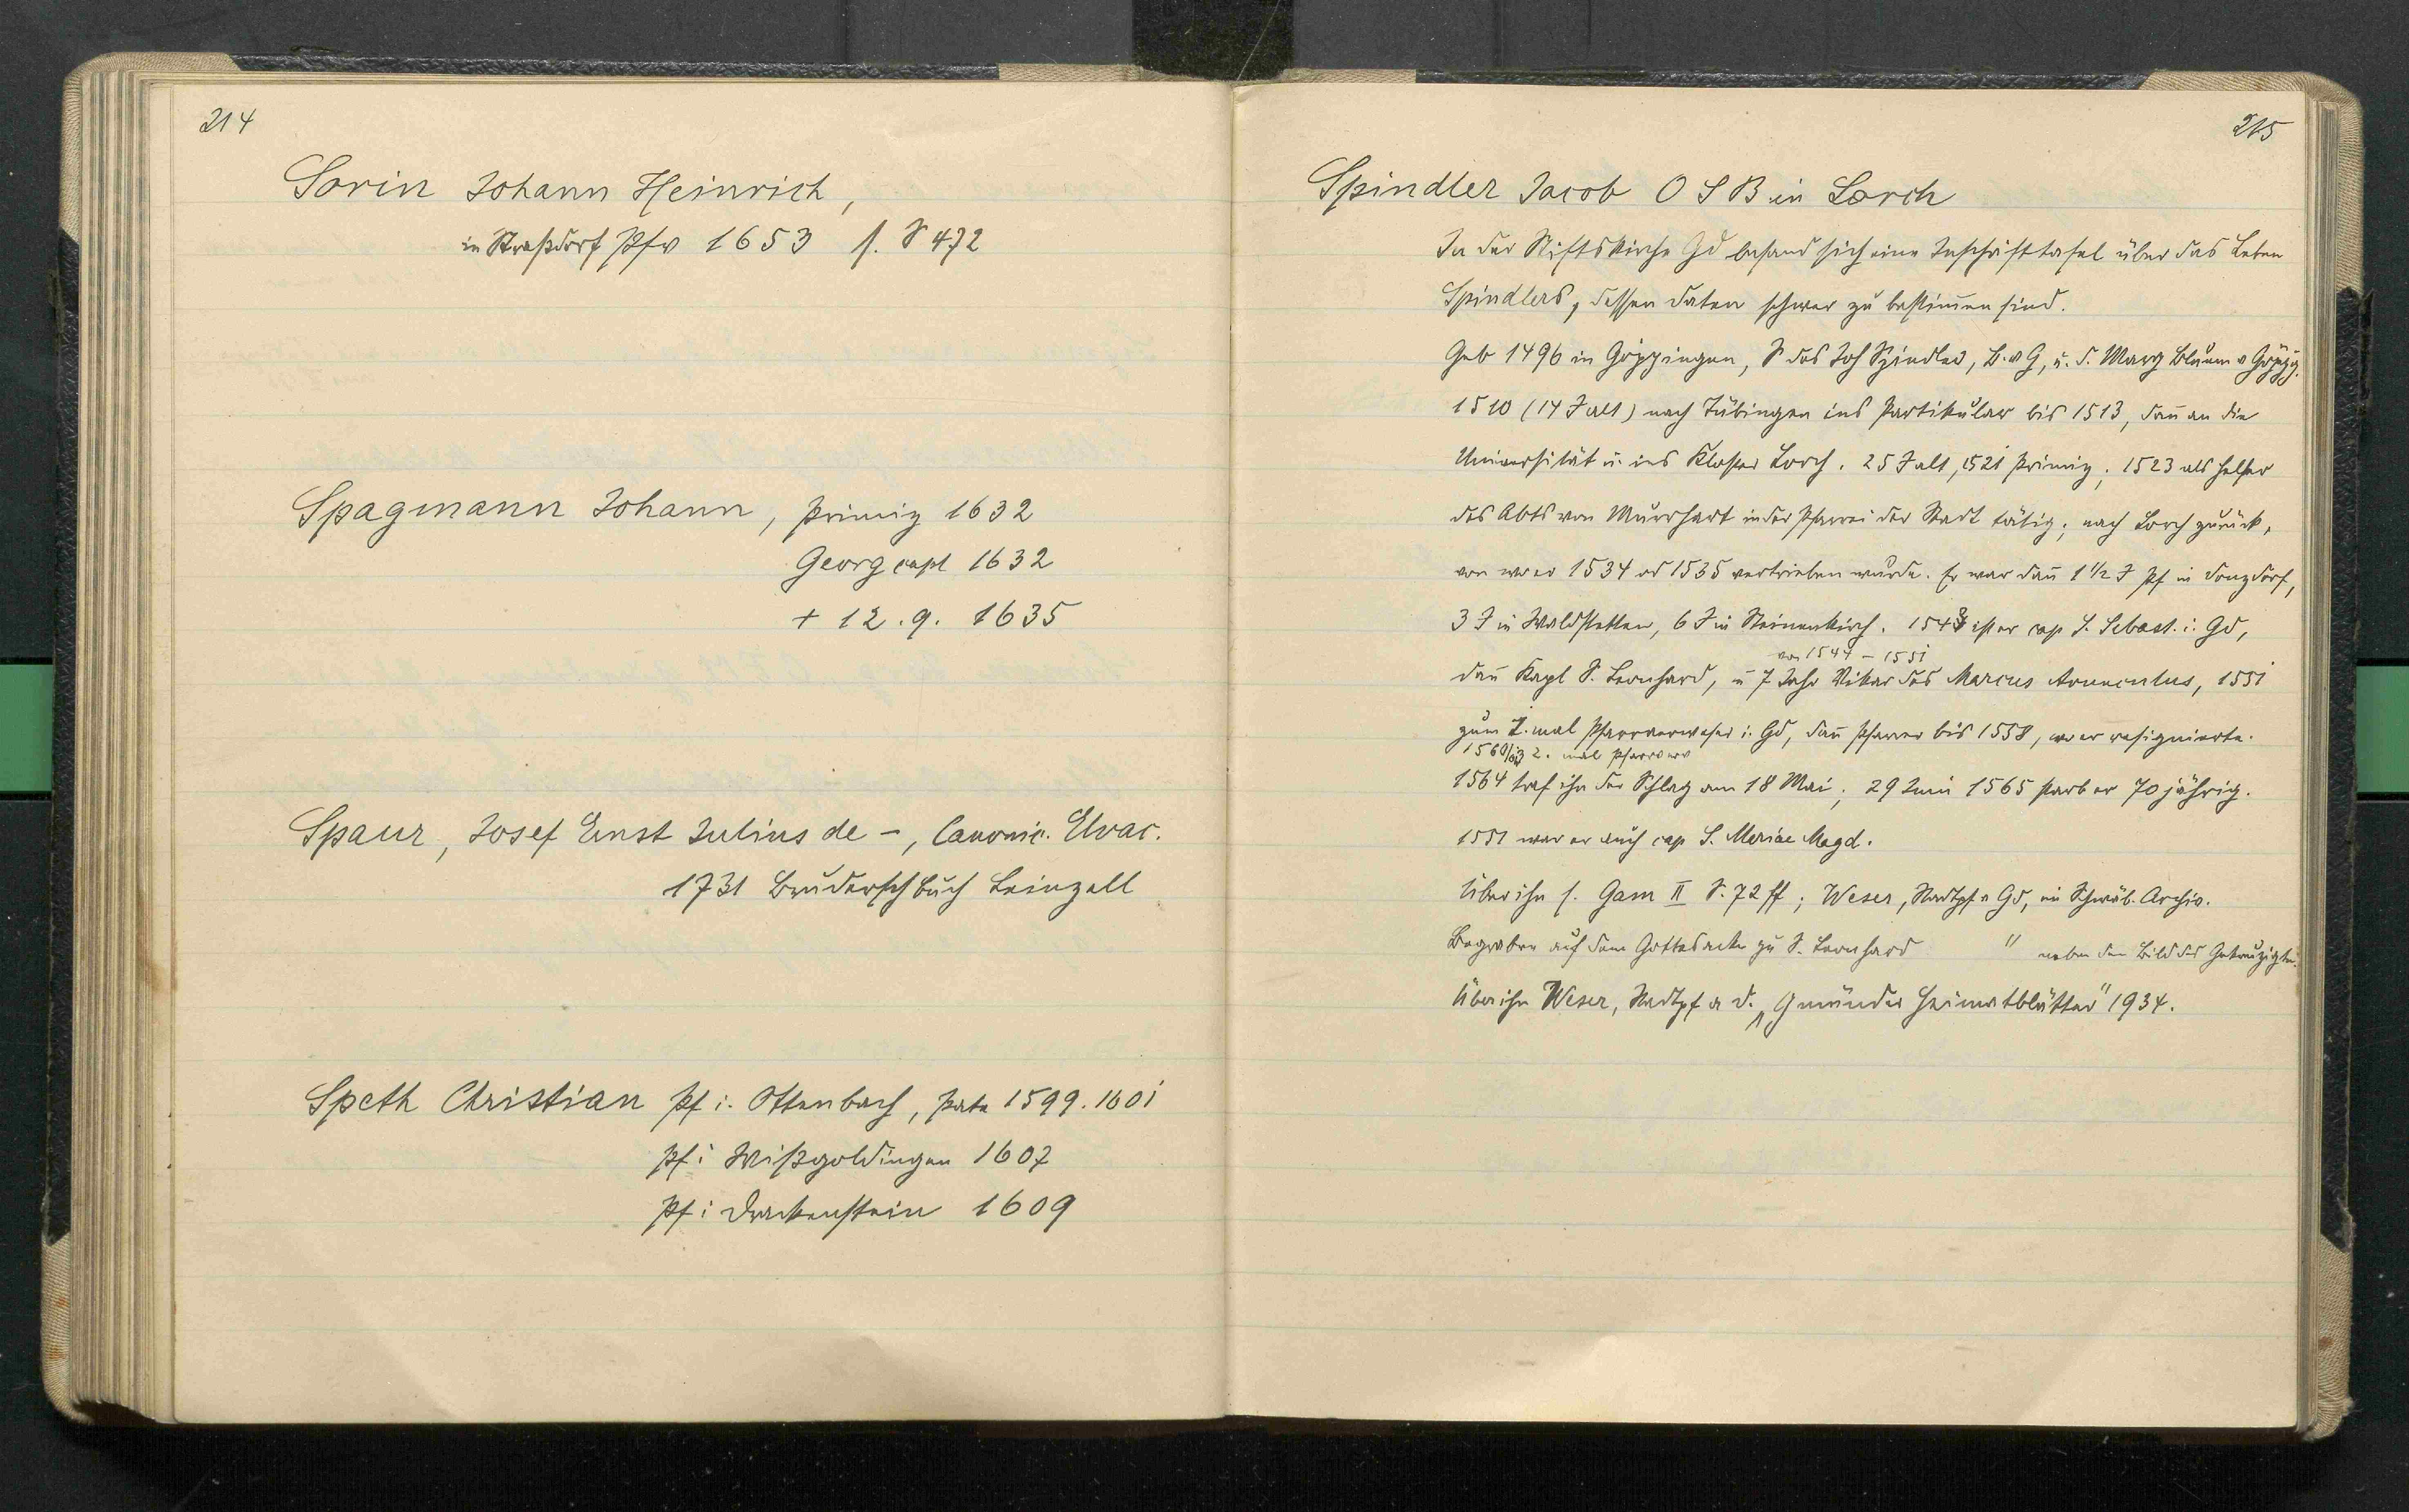 214
Sorin Johann Heinrich,
in Straßdorf Pfv 1653 s. S 472
Spagmann Johann, Primiz 1632
Georg capl 1632
+ 12.9. 1635
Spaur, Josef Ernst Julius de -, Canonic. Elvac.
1731 Bruderschbuch Leinzell
Speth Christian Pf i. Ottenbach, Pate 1599. 1601
Pf i Wißgoldingen 1607
Pf i Drackenstein 1609
215
Spindler Jacob O S B in Lorch
In der Stiftskirche Gd befand sich eine Inschrifttafel über das Leben
Spindlers, dessen Daten schwer zu bestimmen sind.
Geb 1496 in Göppingen, S des Joh Spindler, B. v G, u. d. Marg Blaum v Göppg.
1510 (14 J alt) nach Tübingen ins Partikular bis 1513, dann an die
Universität u. ins Kloster Lorch. 25 J alt, 1521 Primiz; 1523 als Helfer
des Abts von Murrhart in der Pfarrei der Stadt tätig; nach Lorch zurück,
von wo er 1534 od 1535 vertrieben wurde. Er war dann 1 1/2 J Pf in Donzdorf,
3 J in Waldstetten, 6 J in Steinenkirch. 1543 ist er cap S. Sebast. i. Gd,
von 1544 - 1551
dann Kapl S. Leonhard, u 7 Jahr Vikar des Marcus 1551
zum 1. mal Pfarrverweser i. Gd, dann Pfarrer bis 1558, wo er resignierte.
1560/63 2. mal Pfarrverw
1564 traf ihn der Schlag am 18 Mai; 29 Juni 1565 starb er 70 jährig.
1551 war er auch cap S. Mariae Magd.
Über ihn s. Gam II S. 72 ff; Weser, Stadtpf v Gd, im Schwäb. Archiv.
Begraben auf dem Gottesacker zu S. Leonhard " neben dem Bild des Gekreuzigten.
Über ihn Weser, Stadtpf a D. „Gmünder Heimatblätter" 1934.